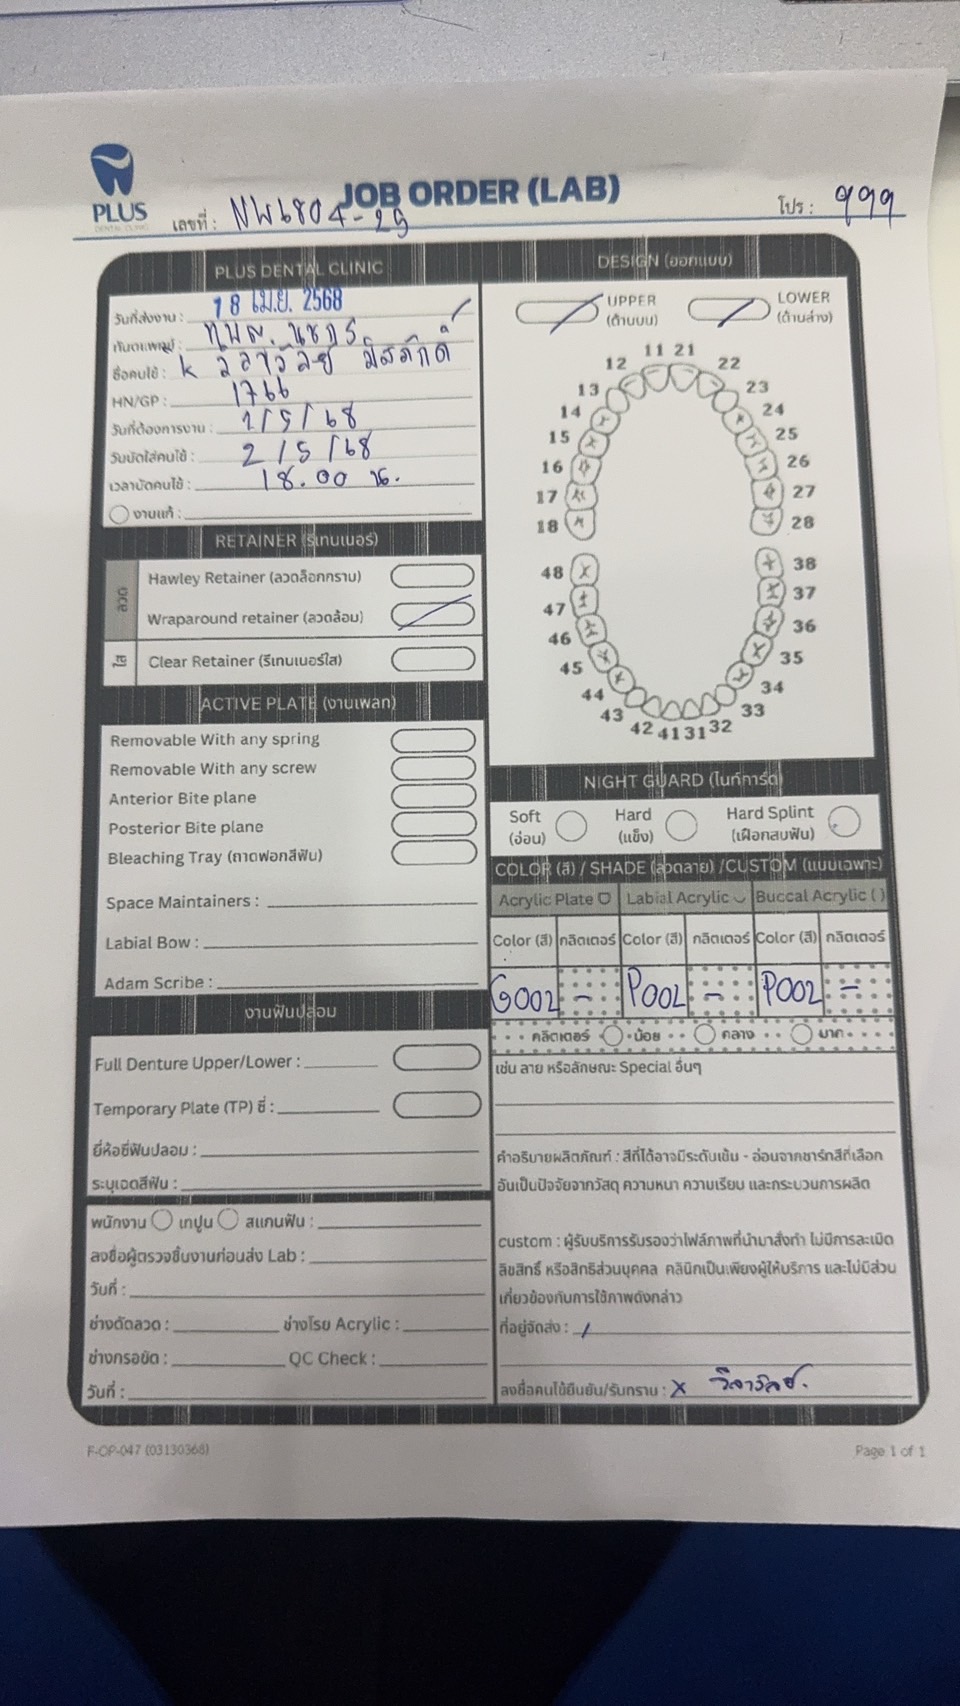 PLUS
DENTAL CLINIC
JOB ORDER (LAB)
เลขที่ : NW6804-29
โปร : 999
PLUS DENTAL CLINIC
วันที่ส่งงาน : 18 เม.ย. 2568
ทันตแพทย์ :
ชื่อคนไข้ : K
HN/GP : 1766
วันที่ต้องการงาน : 1/5/68
วันนัดใส่คนไข้ : 2/5/68
เวลานัดคนไข้ : 18.00 น.
งานแก้ :
RETAINER (รีเทนเนอร์)
ลวด
Hawley Retainer (ลวดล็อกกราม)
Wraparound retainer (ลวดล้อม)
ใส
Clear Retainer (รีเทนเนอร์ใส)
ACTIVE PLATE (งานเพลท)
Removable With any spring
Removable With any screw
Anterior Bite plane
Posterior Bite plane
Bleaching Tray (ถาดฟอกสีฟัน)
Space Maintainers :
Labial Bow :
Adam Scribe :
งานฟันปลอม
Full Denture Upper/Lower :
Temporary Plate (TP) ซี่ :
ยี่ห้อซี่ฟันปลอม :
ระบุเฉดสีฟัน :
พนักงาน เทปูน สแกนฟัน :
ลงชื่อผู้ตรวจชิ้นงานก่อนส่ง Lab :
วันที่ :
ช่างดัดลวด : ช่างโรย Acrylic :
ช่างกรอขัด : QC Check :
วันที่ :
DESIGN (ออกแบบ)
UPPER (ด้านบน)
LOWER (ด้านล่าง)
11 21
12 22
13 23
14 24
15 25
16 26
17 27
18 28
48 38
47 37
46 36
45 35
44 34
43 33
42 41 31 32
NIGHT GUARD (ไนท์การ์ด)
Soft (อ่อน)
Hard (แข็ง)
Hard Splint (เฝือกสบฟัน)
COLOR (สี) / SHADE (ลวดลาย) /CUSTOM (แบบเฉพาะ)
Acrylic Plate Labial Acrylic Buccal Acrylic ( )
Color (สี) กลิตเตอร์ Color (สี) กลิตเตอร์ Color (สี) กลิตเตอร์
G002 - P002 - P002 -
กลิตเตอร์ น้อย กลาง มาก
เช่น ลาย หรือลักษณะ Special อื่นๆ
คำอธิบายผลิตภัณฑ์ : สีที่ได้อาจมีระดับเข้ม - อ่อนจากชาร์ทสีที่เลือก
อันเป็นปัจจัยจากวัสดุ ความหนา ความเรียบ และกระบวนการผลิต
custom : ผู้รับบริการรับรองว่าไฟล์ภาพที่นำมาสั่งทำ ไม่มีการละเมิด
ลิขสิทธิ์ หรือสิทธิส่วนบุคคล คลินิกเป็นเพียงผู้ให้บริการ และไม่มีส่วน
เกี่ยวข้องกับการใช้ภาพดังกล่าว
ที่อยู่จัดส่ง : /
ลงชื่อคนไข้ยืนยัน/รับทราบ : x
F-OP-047 (03130368)
Page 1 of 1